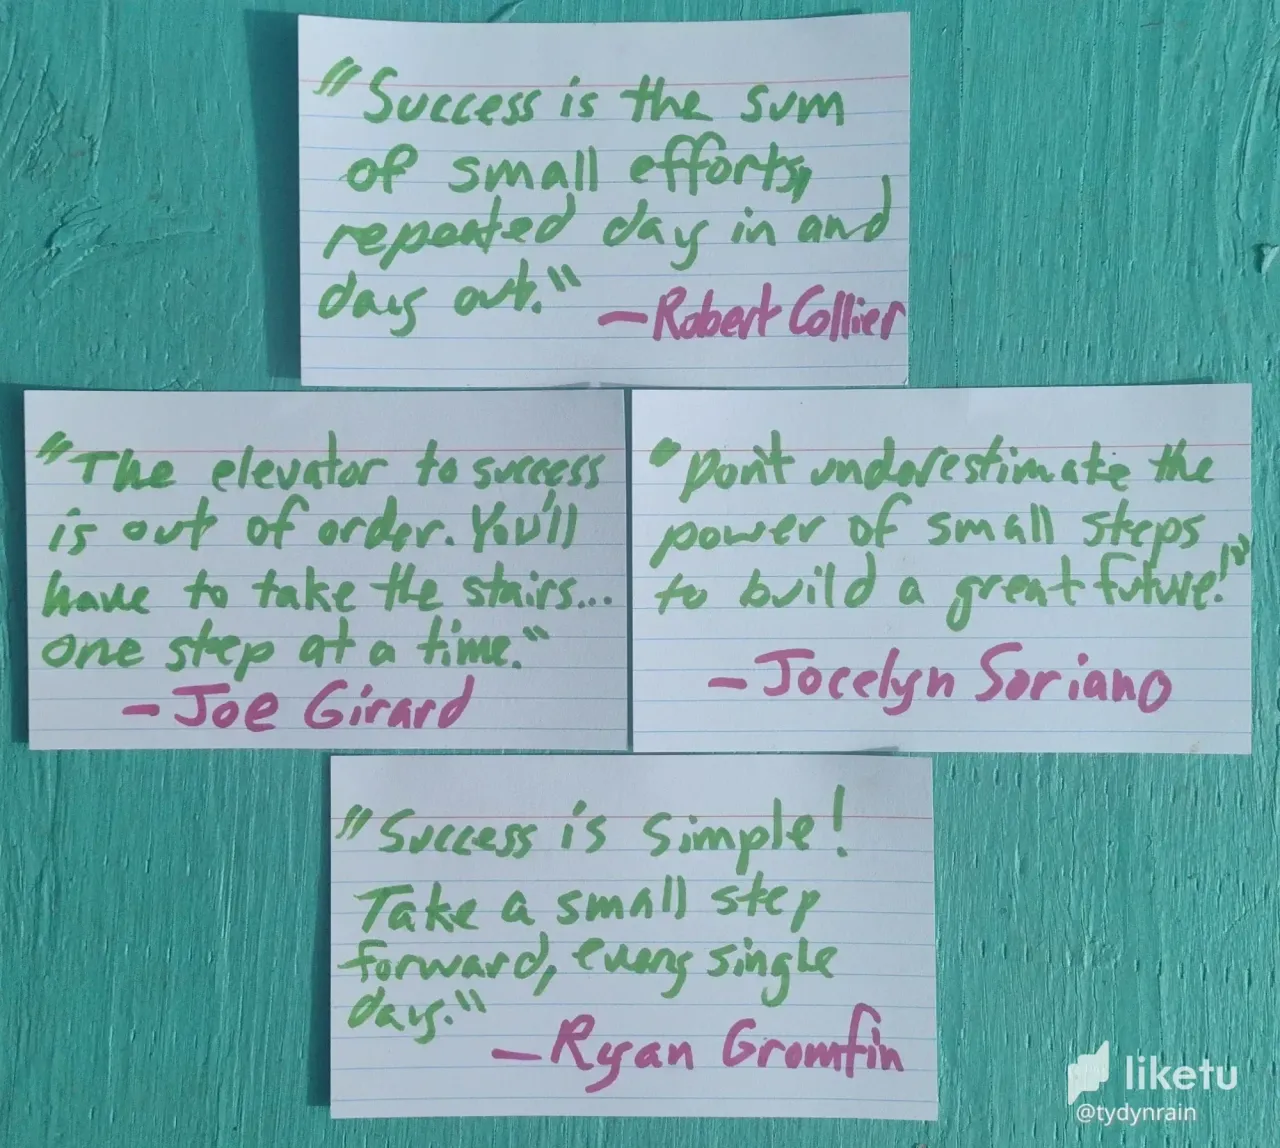 "Success is the sum
of small efforts,
repeated day in and
day out."
—Robert Collier
"The elevator to success
is out of order. You'll
have to take the stairs...
one step at a time."
—Joe Girard
"Don't underestimate the
power of small steps
to build a great future!"
—Jocelyn Soriano
"Success is simple!
Take a small step
forward, every single
day."
—Ryan Gromfin
liketu
@tydynrain